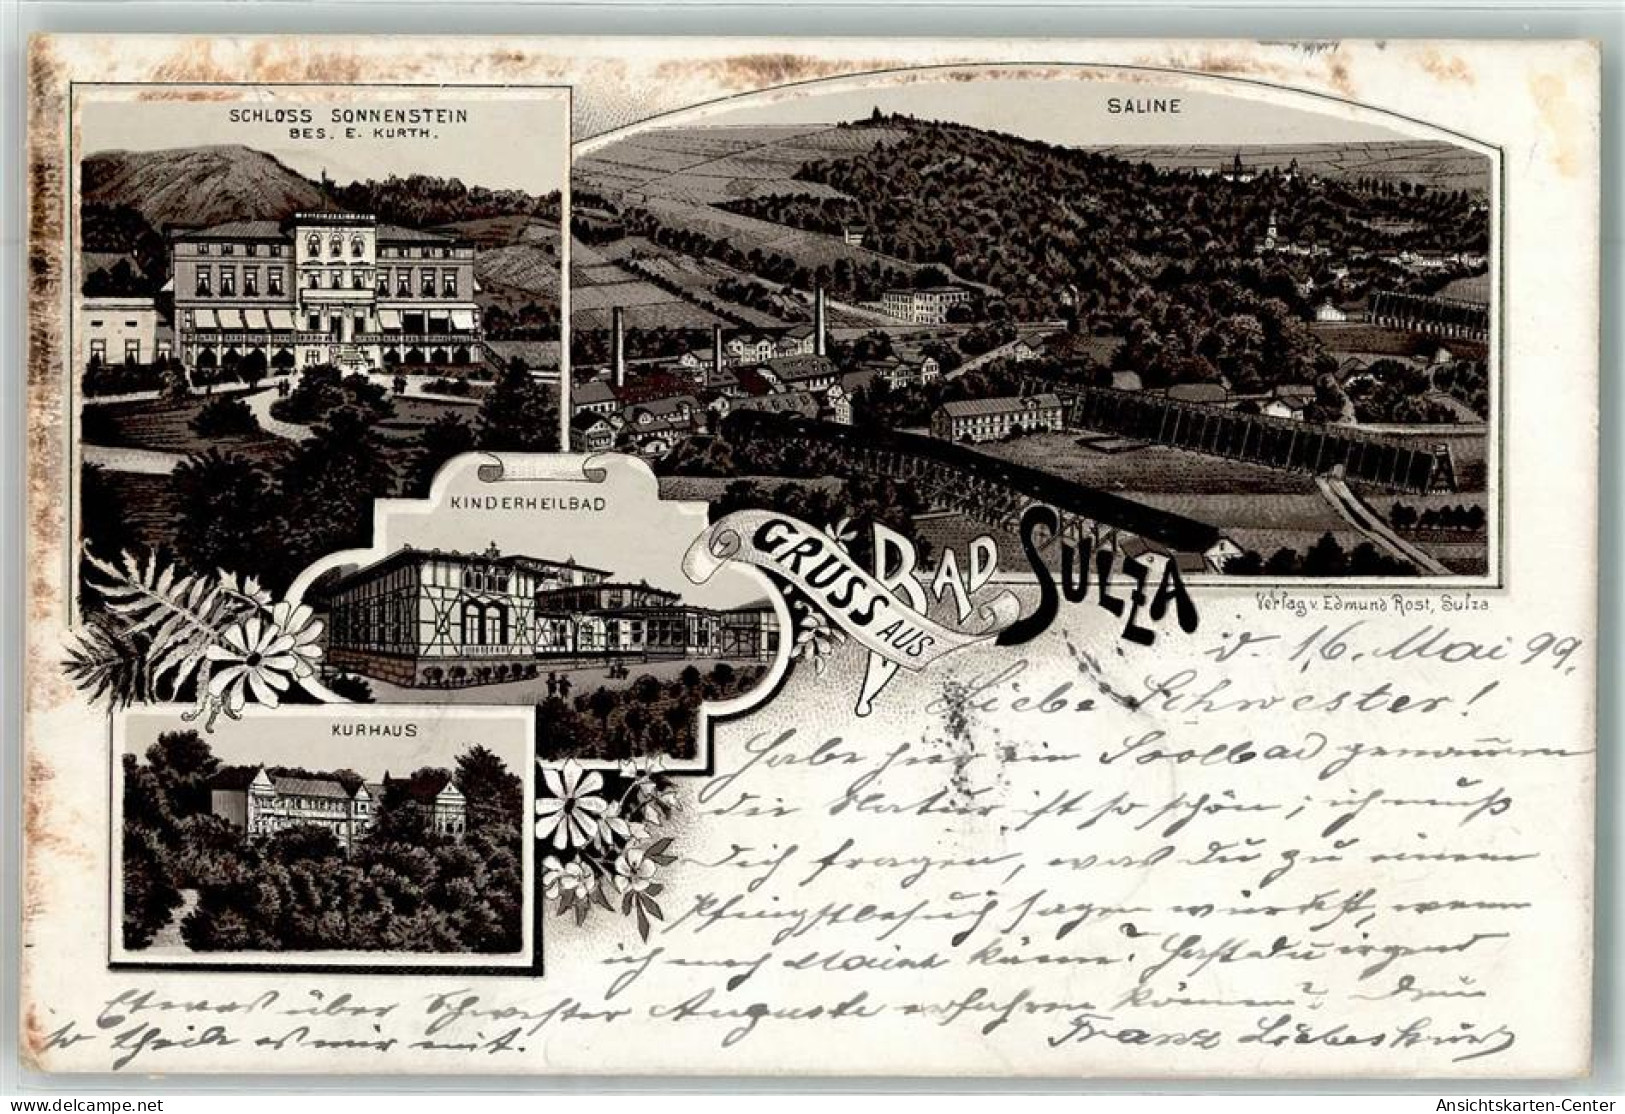 SCHLOSS SONNENSTEIN
BES. E. KURTH.
SALINE
KINDERHEILBAD
GRUSS AUS
BAD SULZA
KURHAUS
Verlag v. Edmund Rost, Sulza
d. 16. Mai 99.
Liebe Schwester!
Habe hier ein Soolbad genommen
die Natur ist so schön; ich muß
Dich fragen, was Du zu einem
Pfingstbesuch sagen würdest, wenn
ich nach käme? Hast du irgend
Etwas über Schwester Auguste erfahren können? Dein
so theile es mir mit.
Franz
delcampe.net
Ansichtskarten-Center